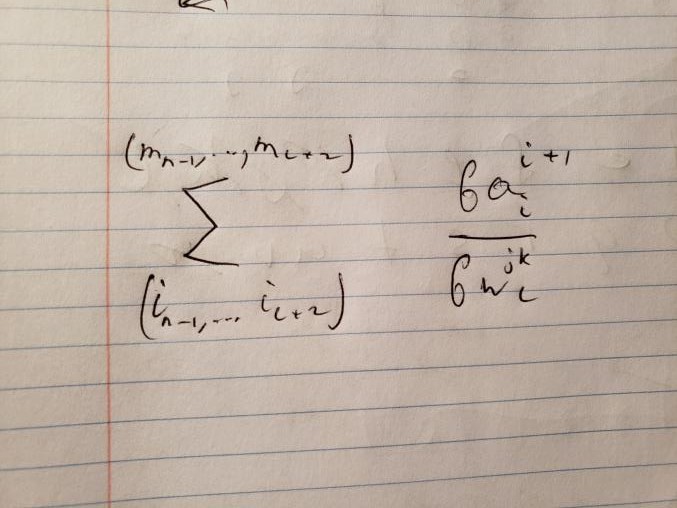 \sum_{(i_{n-1}, ... i_{L+2})}^{(m_{n-1}, ..., m_{L+2})} \frac{6a_i^{i+1}}{6w_L^{jk}}